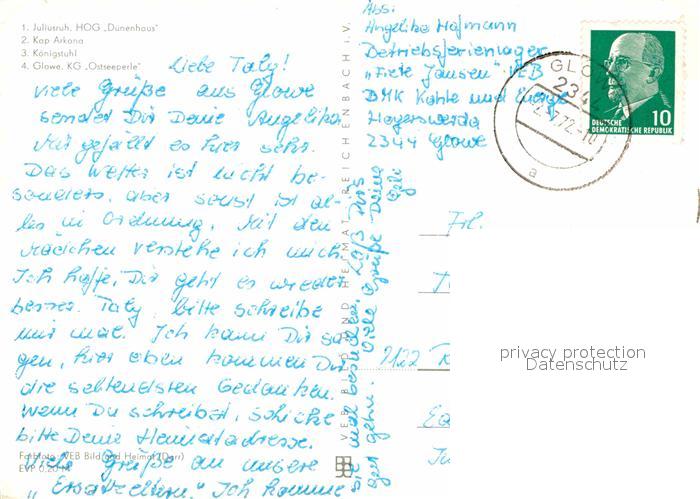 1. Juliusruh, HOG „Dünenhaus"
2. Kap Arkona
3. Königstuhl
4. Glowe, KG „Ostseeperle"
Liebe Taly!
viele Grüße aus Glowe
sendet Dir Deine Angelika
Mir gefällt es hier sehr.
Das Wetter ist nicht be-
sonders, aber sonst ist al-
les in Ordnung. Mit den
Mädchen verstehe ich mich.
Ich hoffe, Dir geht es wieder
besser. Taly, bitte schreibe
mir mal. Ich kann Dir sa-
gen, hier oben kommen Dir
die seltendsten Gedanken.
Wenn Du schreibst, schicke
bitte Deine Heimatadresse.
Viele Grüße an unsere
„Ersatzeltern." Ich komme
sie mal besuchen. Laß Dirs
gut gehn. Viele Grüße Deine
Geli
Farbfoto: VEB Bild und Heimat (Darr)
EVP 0,20 M
VEB BILD UND HEIMAT REICHENBACH i. V.
Abs:
Angelika Hofmann
Betriebsferienlager
„Fiete Jansen" VEB
BMK Kohle und Energie
Hoyerswerda
2344 Glowe
GLOWE
2344
72-10
a
DEUTSCHE
DEMOKRATISCHE REPUBLIK
10
Frl.
9122
privacy protection
Datenschutz